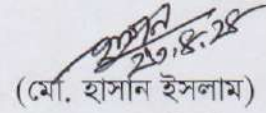 ২৩.৪.২৪
(মো. হাসান ইসলাম)